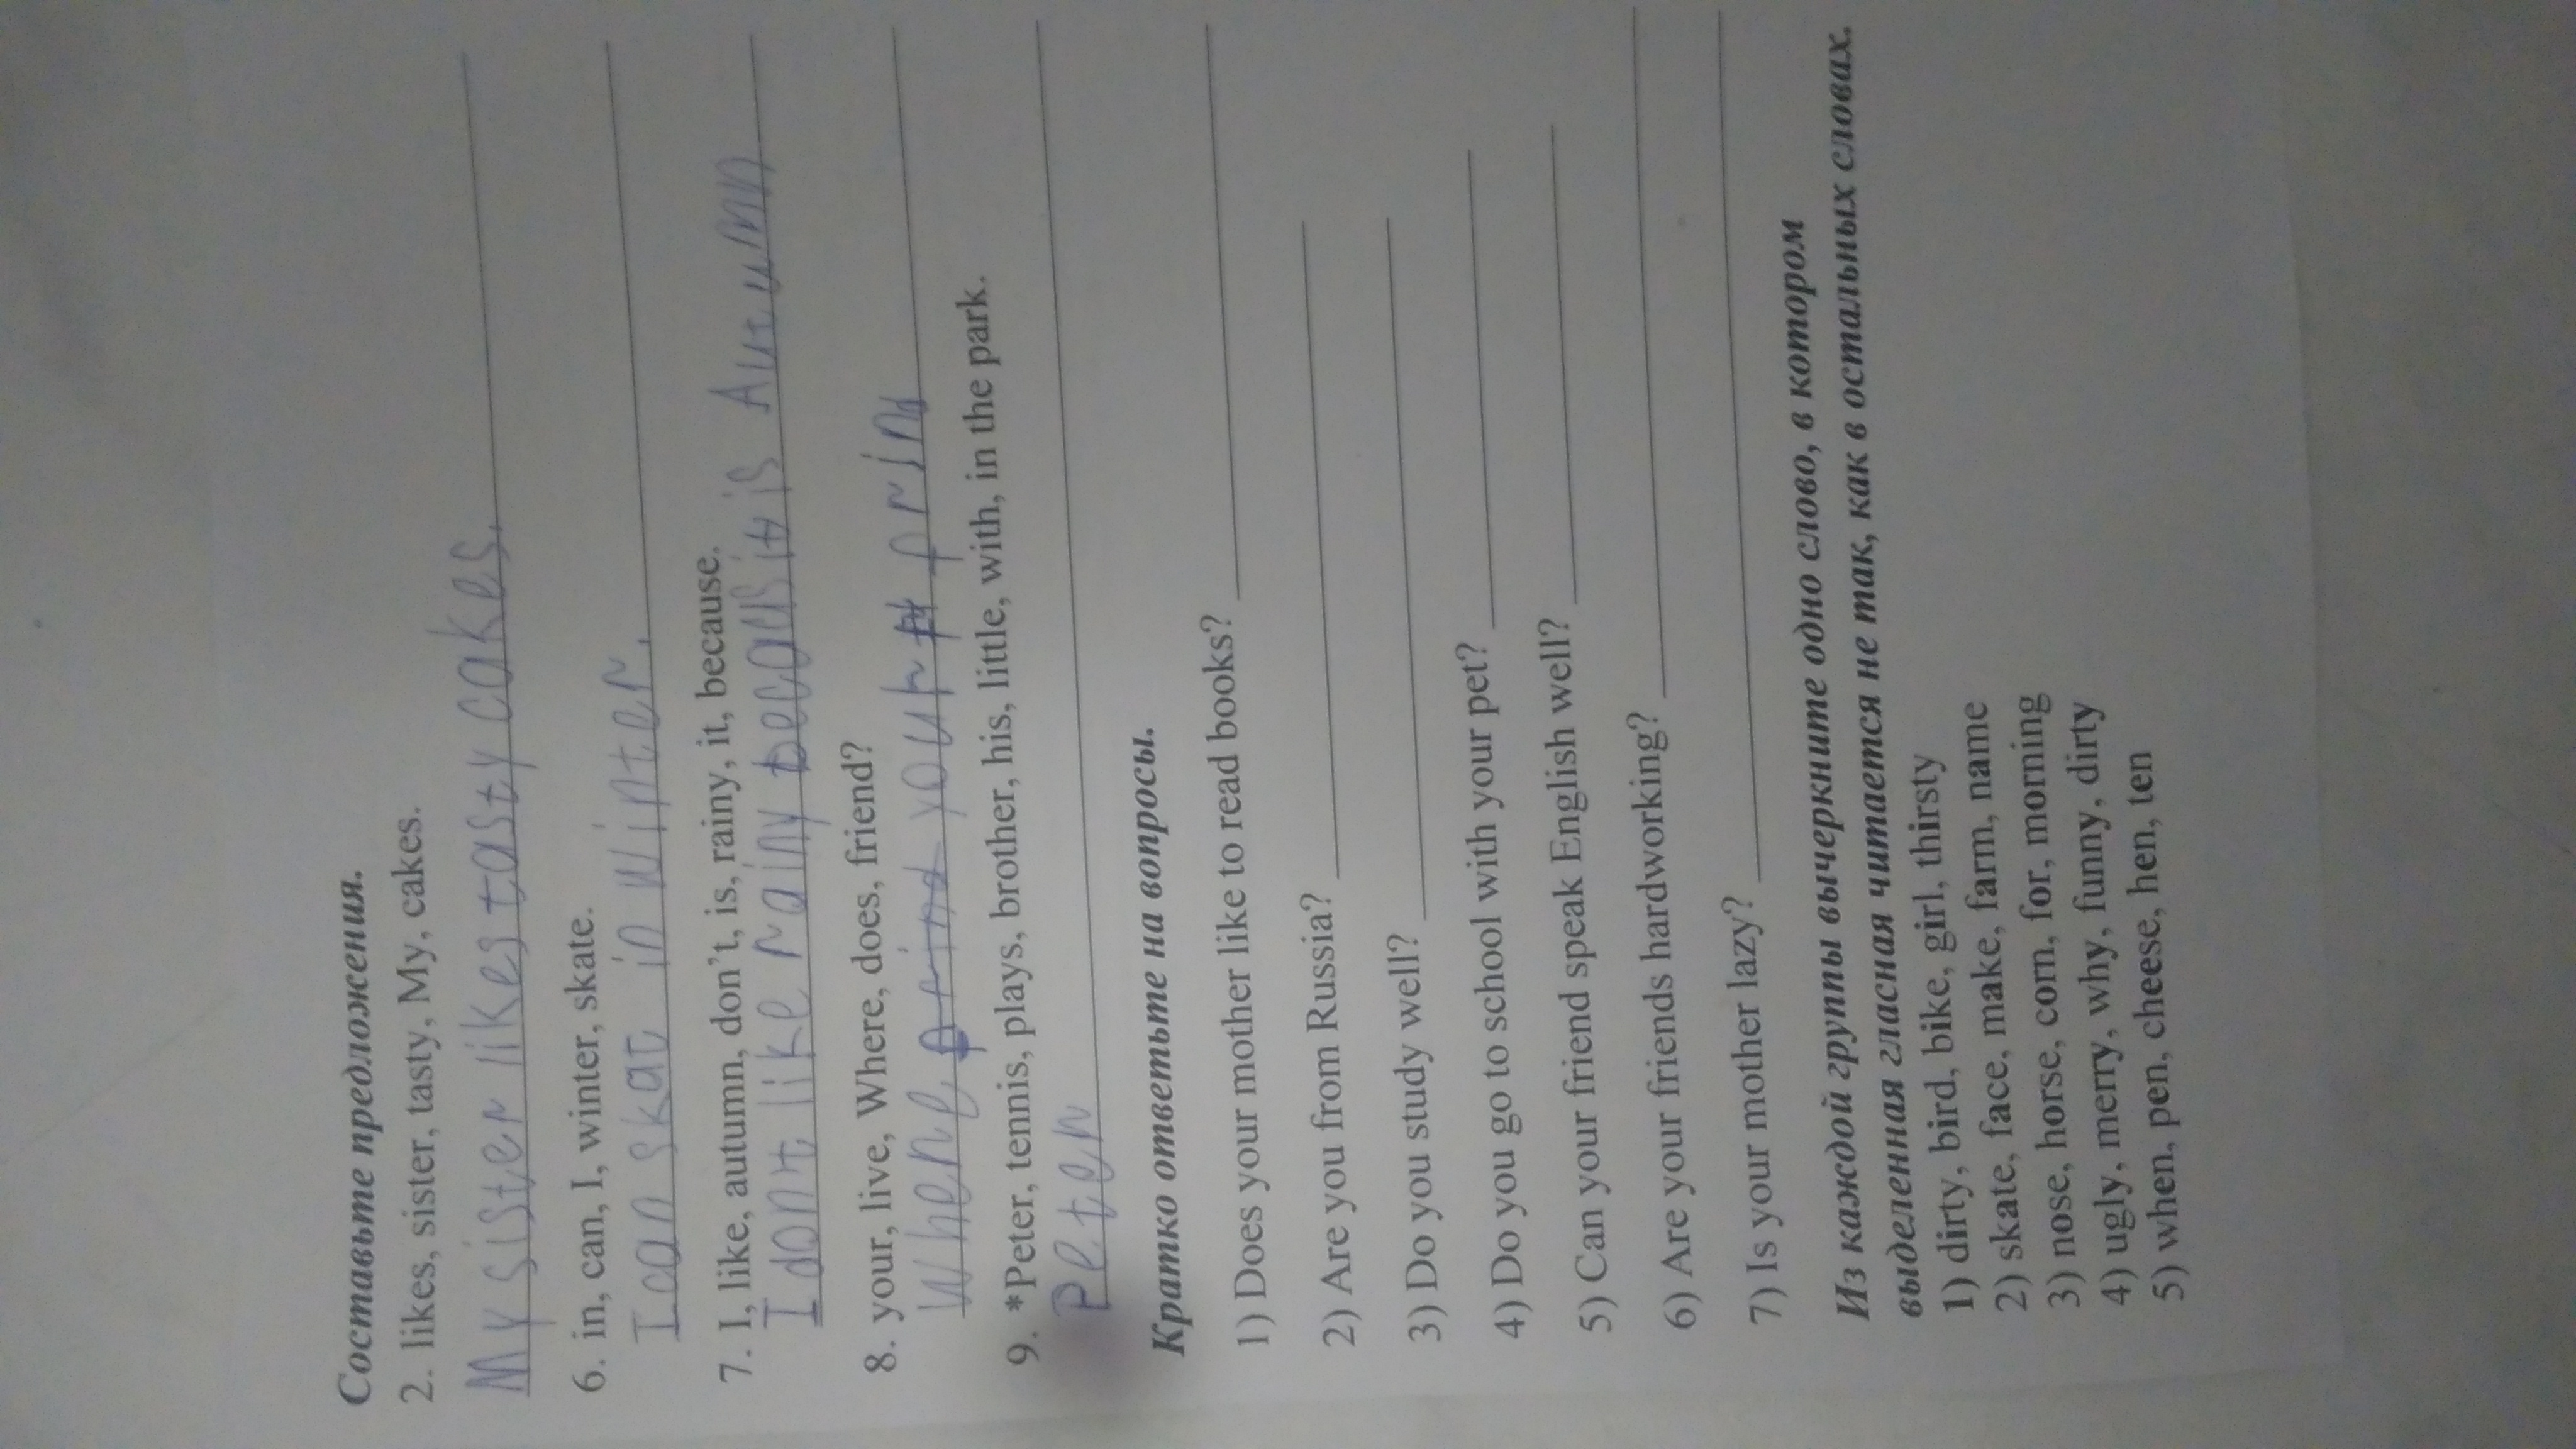 Составьте предложения.
2. likes, sister, tasty, My, cakes.
My sister likes tasty cakes.
6. in, can, I, winter, skate.
I can skat in winter.
7. I, like, autumn, don't, is, rainy, it, because.
I dont like rainy becaus it is Autumn
8. your, live, Where, does, friend?
Where your
9. *Peter, tennis, plays, brother, his, little, with, in the park.
Peter
Кратко ответьте на вопросы.
1) Does your mother like to read books? ____
2) Are you from Russia? ____
3) Do you study well? ____
4) Do you go to school with your pet? ____
5) Can your friend speak English well? ____
6) Are your friends hardworking? ____
7) Is your mother lazy? ____
Из каждой группы вычеркните одно слово, в котором
выделенная гласная читается не так, как в остальных словах.
1) dirty, bird, bike, girl, thirsty
2) skate, face, make, farm, name
3) nose, horse, corn, for, morning
4) ugly, merry, why, funny, dirty
5) when, pen, cheese, hen, ten